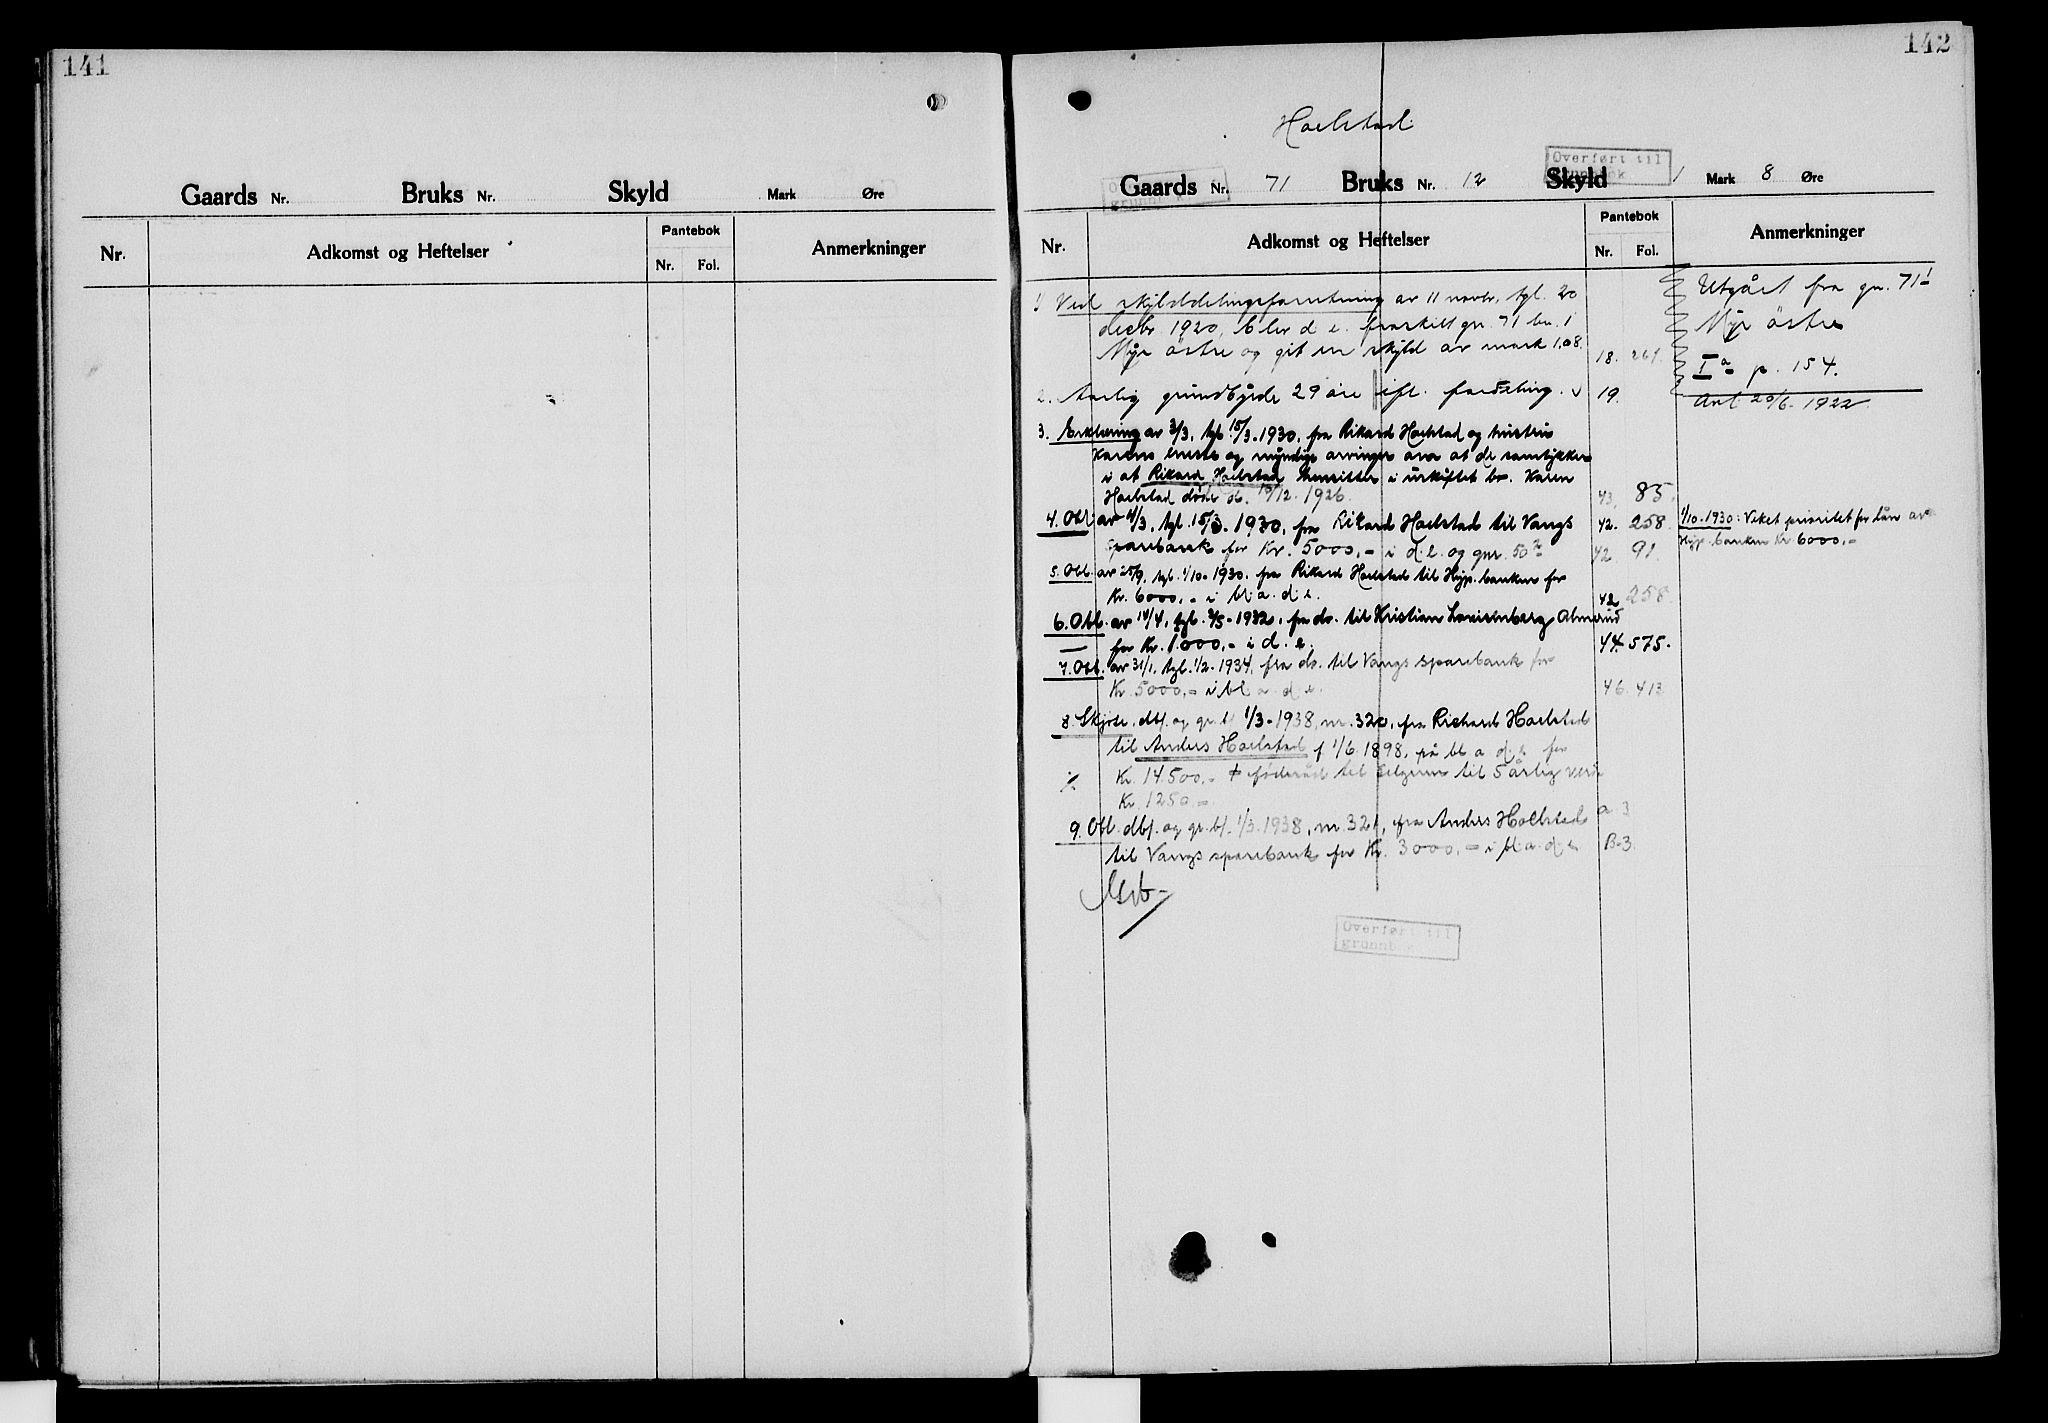 141
Gaards Nr. Bruks Nr. Skyld Mark Øre
Nr. Adkomst og Heftelser Pantebok Anmerkninger
Nr. Fol.
142
Haelstad
Overført til
Gaards Nr. 71 Bruks Nr. 12 Skyld 1 Mark 8 Øre
Nr. Adkomst og Heftelser Pantebok Anmerkninger
Nr. Fol.
1 Ved skylddelingsforretning av 11 novbr. tgl. 20
decbr 1920, blev d. e. fraskilt gn. 71 bn. 1
Myr østre og git en skyld av mark 1,08. 18. 261.
Utgået fra gn. 71 1
Myr østre
I a p. 154.
Ant 20/6 1922.
2. Aarlig grundbyrde 29 øre ifl. fordeling. 19.
3. Erklæring av 3/3, tgl. 15/3-1930, fra Rikard Haelstad og hustru
Karens eneste og myndige arvinger om at de samtykker
i at Rikard Haelstad hensitter i uskiftet bo. Karen
Haelstad døde d. 10/12. 1926. 43, 85.
4. Obl. av 4/3, tgl. 15/3-1930, fra Rikard Haelstad til Vangs 42. 258.
sparebank for Kr. 5000,- i d. e. og gnr. 50 42 91.
1/10-1930: Veket prioritet for lån av
Hyp. banken Kr. 6000,-
5. Obl. av 25/9, tgl. 1/10-1930, fra Rikard Haelstad til Hyp. banken for
Kr. 6000,- i bl. a. d. e. 42 258.
6. Obl. av 14/4, tgl. 2/5-1932, fra ds. til Kristian Lauritsberg Almerud
for Kr. 1.000,- i d. e. 44. 575.
7. Obl. av 31/1, tgl. 1/2-1934, fra ds. til Vangs sparebank for
Kr. 5000,- i bl. a. d. e. 46. 413
8. Skjøte, dbf. og gr.bf. 1/3-1938, nr. 320, fra Richard Haelstad
til Anders Haelstad f. 1/6 1898, på bl. a. d. e. for
Kr. 14.500,- + føderåd til selgeren til 5 årlig verdi
Kr. 1250,- a-3
9. Obl. dbf. og gr.bf. 1/3-1938, nr. 321, fra Anders Haelstad
til Vangs sparebank for Kr. 3000,- i bl. a. d. e. B-3.
Overført til